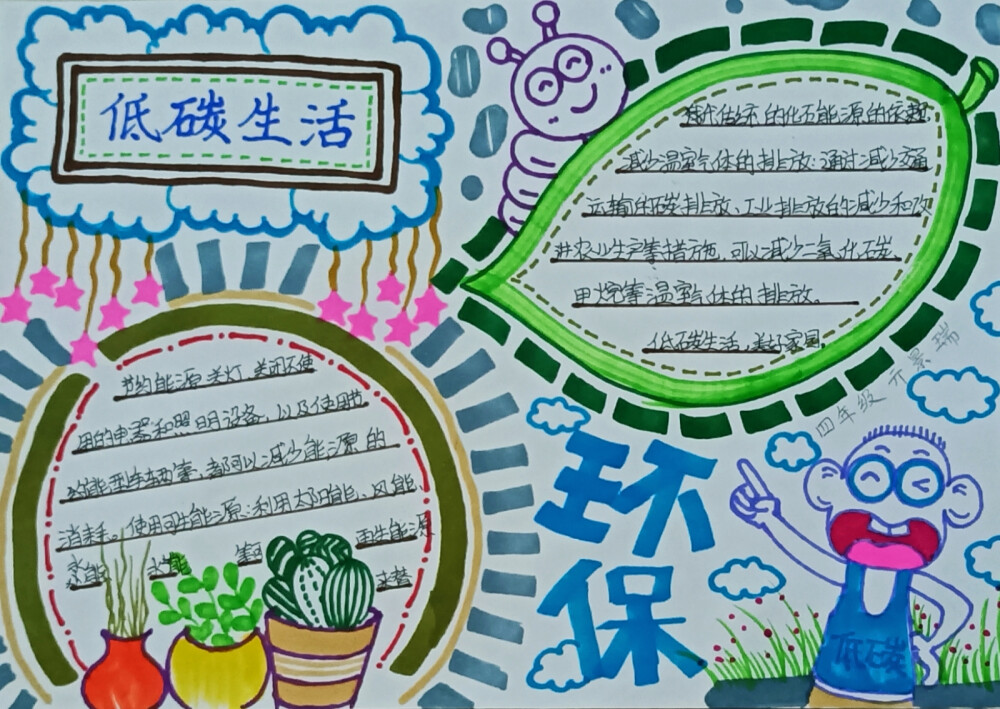 低碳生活
替代传统的化石能源的依赖
减少温室气体的排放:通过减少交通
运输的碳排放、工业排放的减少和改
进农业生产等措施,可以减少二氧化碳
甲烷等温室气体的排放。
低碳生活,美好家园。
四年级 亓景瑞
节约能源:关灯、关闭不使
用的电器和照明设备,以及使用节
能型车辆等,都可以减少能源的
消耗。使用可再生能源:利用太阳能、风能
水能 等可 再生能源
环保
低碳